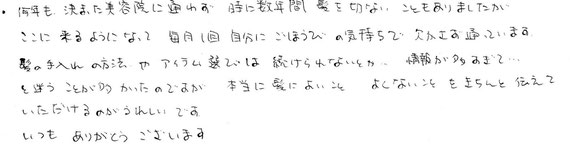 ・何年も 決まった美容院に通わず 時に数年間 髪を切ない こともありましたが
ここに 来るようになって 毎月1回 自分に ごほうび の気持ちで 欠かさず通っています.
髪の手入れ の方法 や アイテム 選びは 続けられないとか.. 情報が多すぎて…
と迷う ことが多かったのですが 本当に 髪によいこと よくないこと をきちんと 伝えて
いただけるのがうれしいです
いつも ありがとう ございます